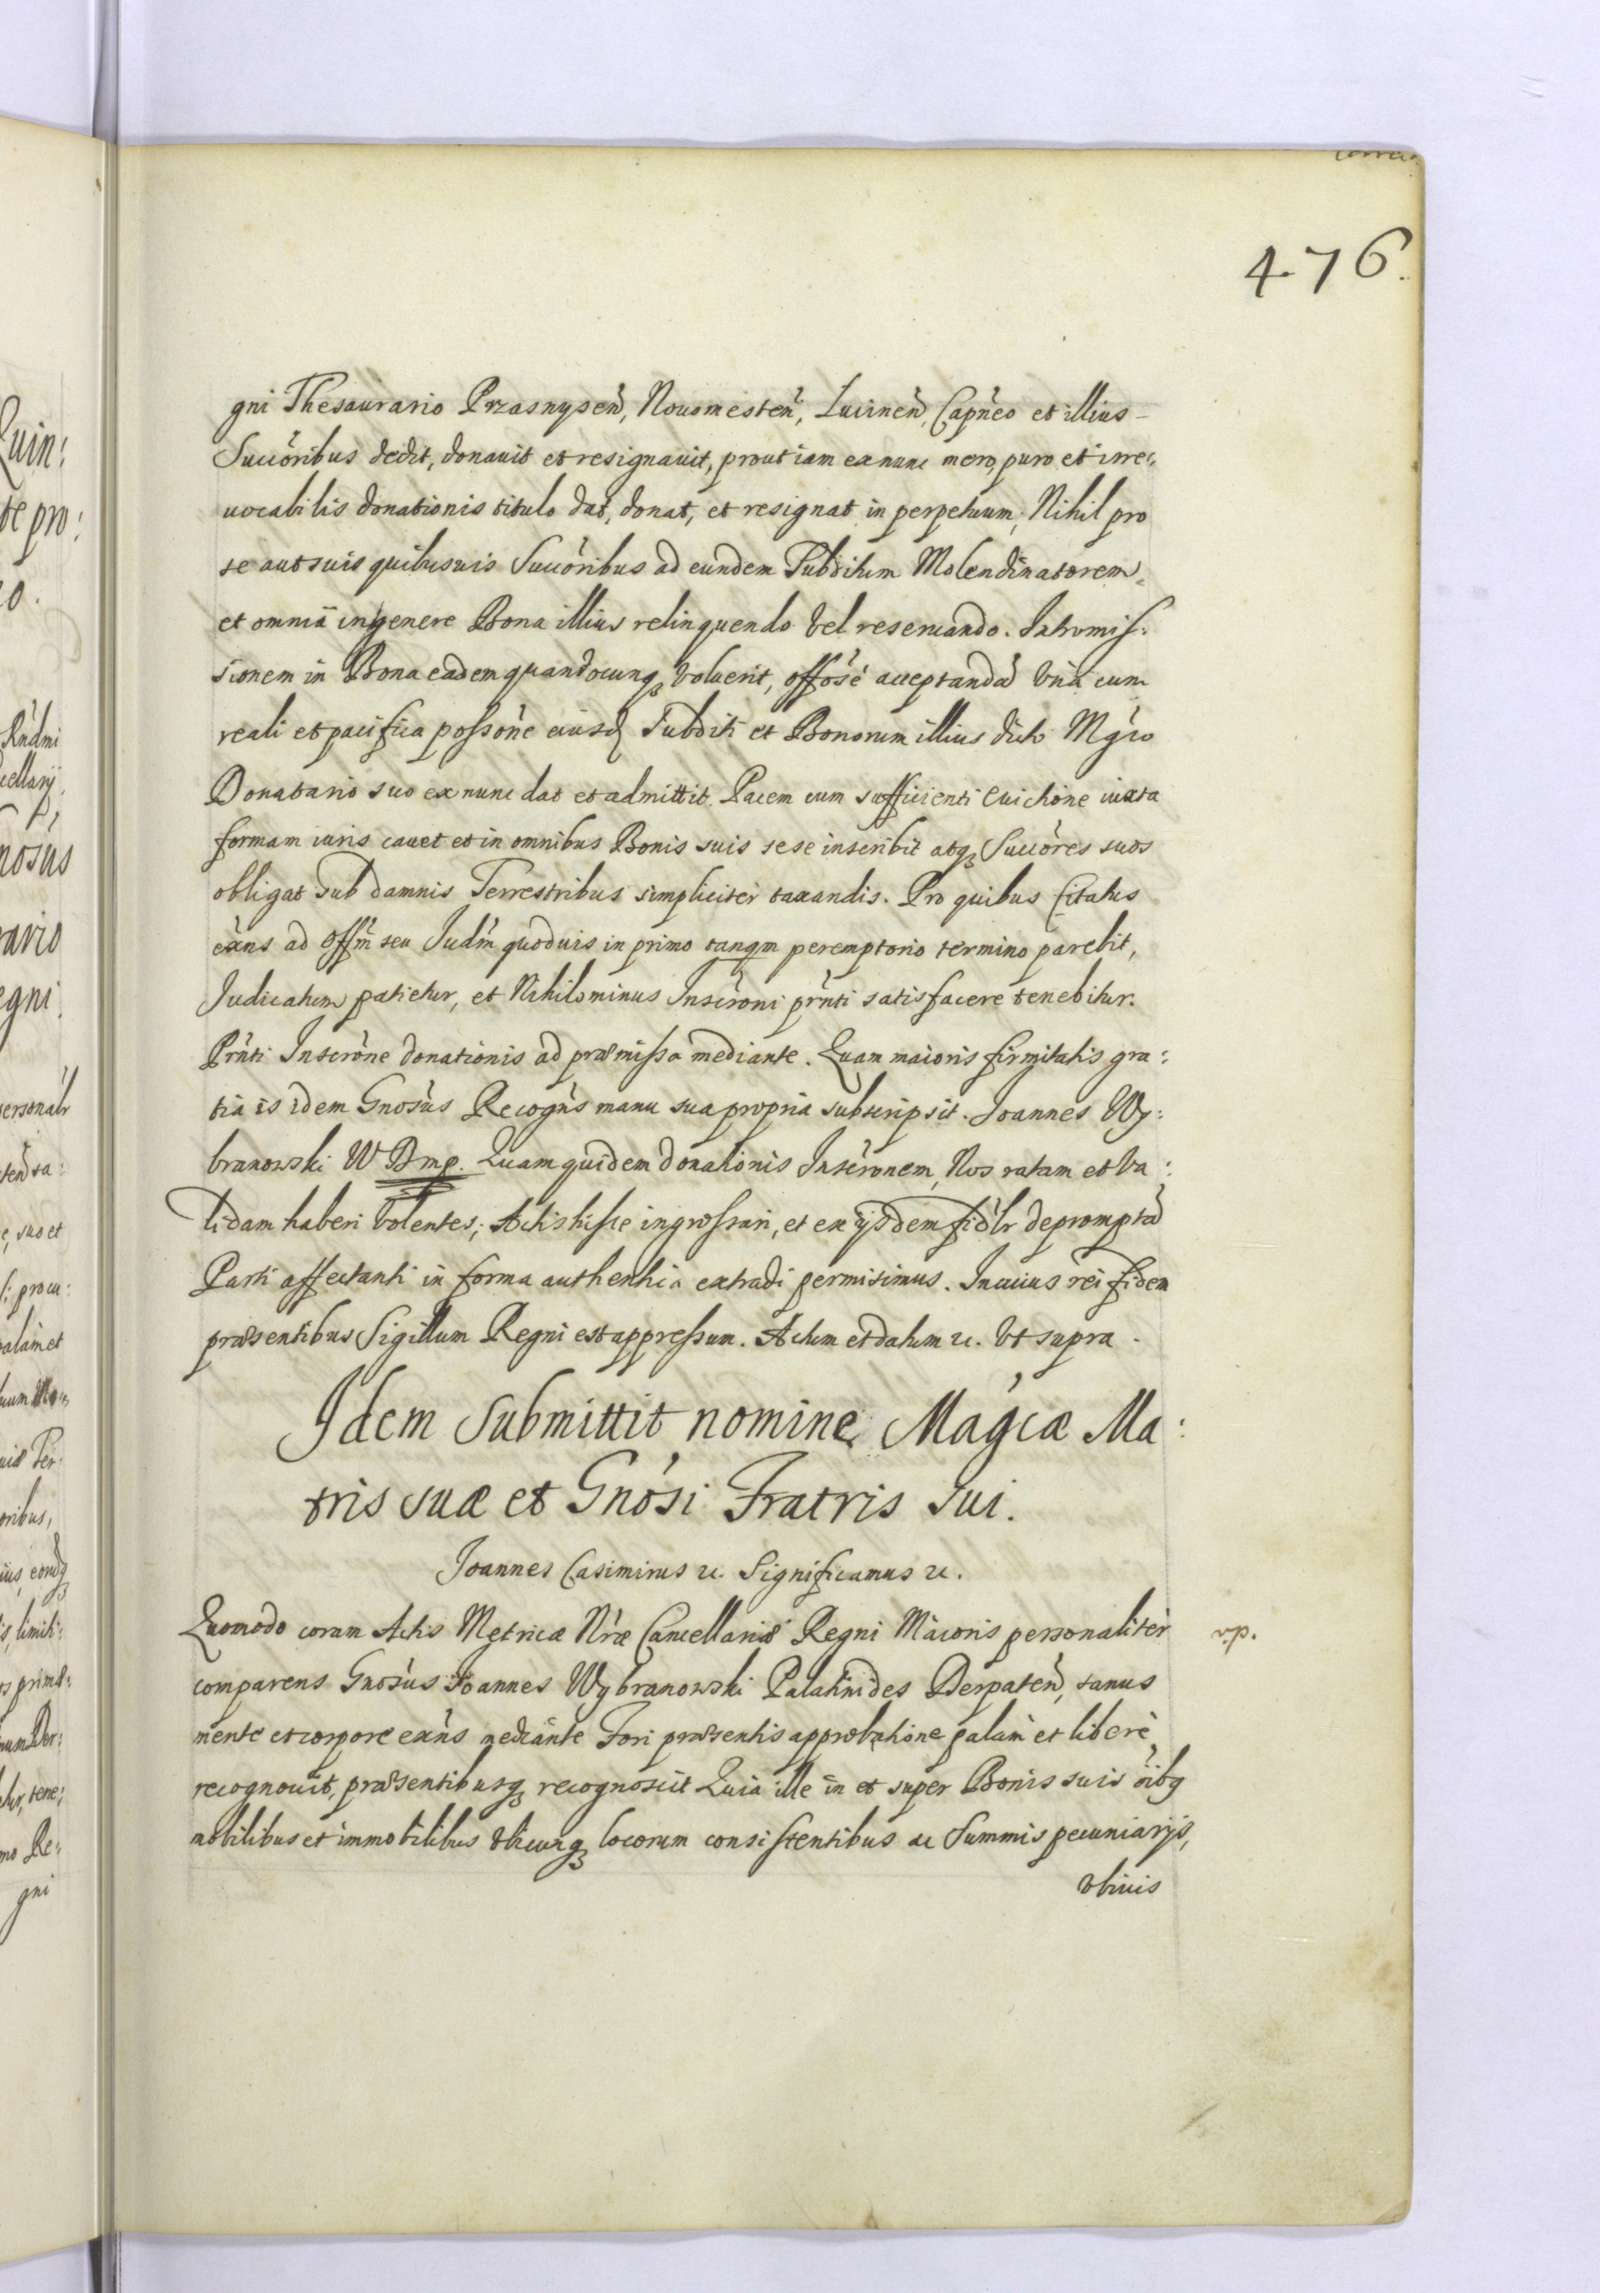 476.
gni Thesaurario Przasnyseñ, Nouomesteñ, Lucineñ, Capñeo et illius
Succoribus dedit, donauit et resignauit, prout iam ex nunc mero, puro et irre:
uocabilis donationis titulo dat, donat, et resignat in perpetuum, Nihil pro
se aut suis quibusuis Succoribus ad eundem Subditum Molendinatorem
et omnia in genere Bona illius relinquendo vel reseruando. Intromis:
sionem in Bona eadem quandocunq₃ voluerit, offose acceptandã vna cum
reali et pacifica possone eiusd Subditi et Bonorum illius dicto Mgco
Donatario suo ex nunc dat et admittit. Pacem cum sufficienti Euictione iuxta
formam iuris cauet et in omnibus Bonis suis sese inscribit atq₃ Succores suos
obligat sub damnis Terrestribus simpliciter taxandis. Pro quibus Citatus
exns ad Offm̃ seu Judm̃ quoduis in primo tanqm peremptorio termino parebit,
Judicatum patietur, et Nihilominus Inscroni prñti satisfacere tenebitur.
Prñti Inscrone donationis ad præmissa mediante. Quam maioris firmitatis gra:
tia is idem Gnosus Recogñs manu sua propria subscripsit. Joannes Wy:
branowski W D mp. Quam quidem donationis Inscronem, Nos ratam et va:
lidam haberi volentes, Actis hisce ingrossari, et ex ijsdem fidlr depromptã
Parti affectanti in forma authentica extradi permisimus. In cuius rei fidem
præsentibus Sigillum Regni est appressum. Actum et datum &c. vt supra.
Idem Submittit nomine Magcæ Ma:
tris suæ et Gnosi Fratris sui.
Joannes Casimirus &c. Significamus &c.
Quomodo coram Actis Metricæ Nræ Cancellariæ Regni Maioris personaliter
comparens Gnosus Joannes Wybranowski Palatinides Derpateñ, sanus
mente et corpore exns mediante Fori præsentis approbatione palam et libere
recognouit, præsentibusq₃ recognoscit Quia ille in et super Bonis suis oibq
mobilibus et immobilibus vbicunq₃ locorum consistentibus ac Summis pecuniarijs,
vbiuis